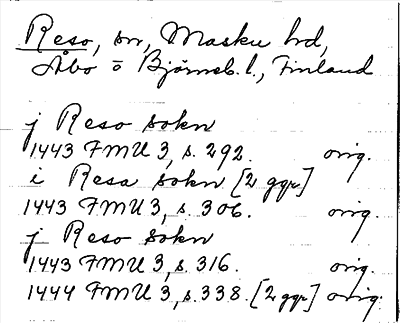 Reso, sn, Masku hd,
Åbo o Björneb. l., Finland
j Reso sokn
1443 FMU 3, s. 292. orig.
i Resa sokn [2 ggr]
1443 FMU 3, s. 306. orig.
j Reso sokn
1443 FMU 3, s. 316. orig.
1444 FMU 3, s. 338. [2 ggr] orig.